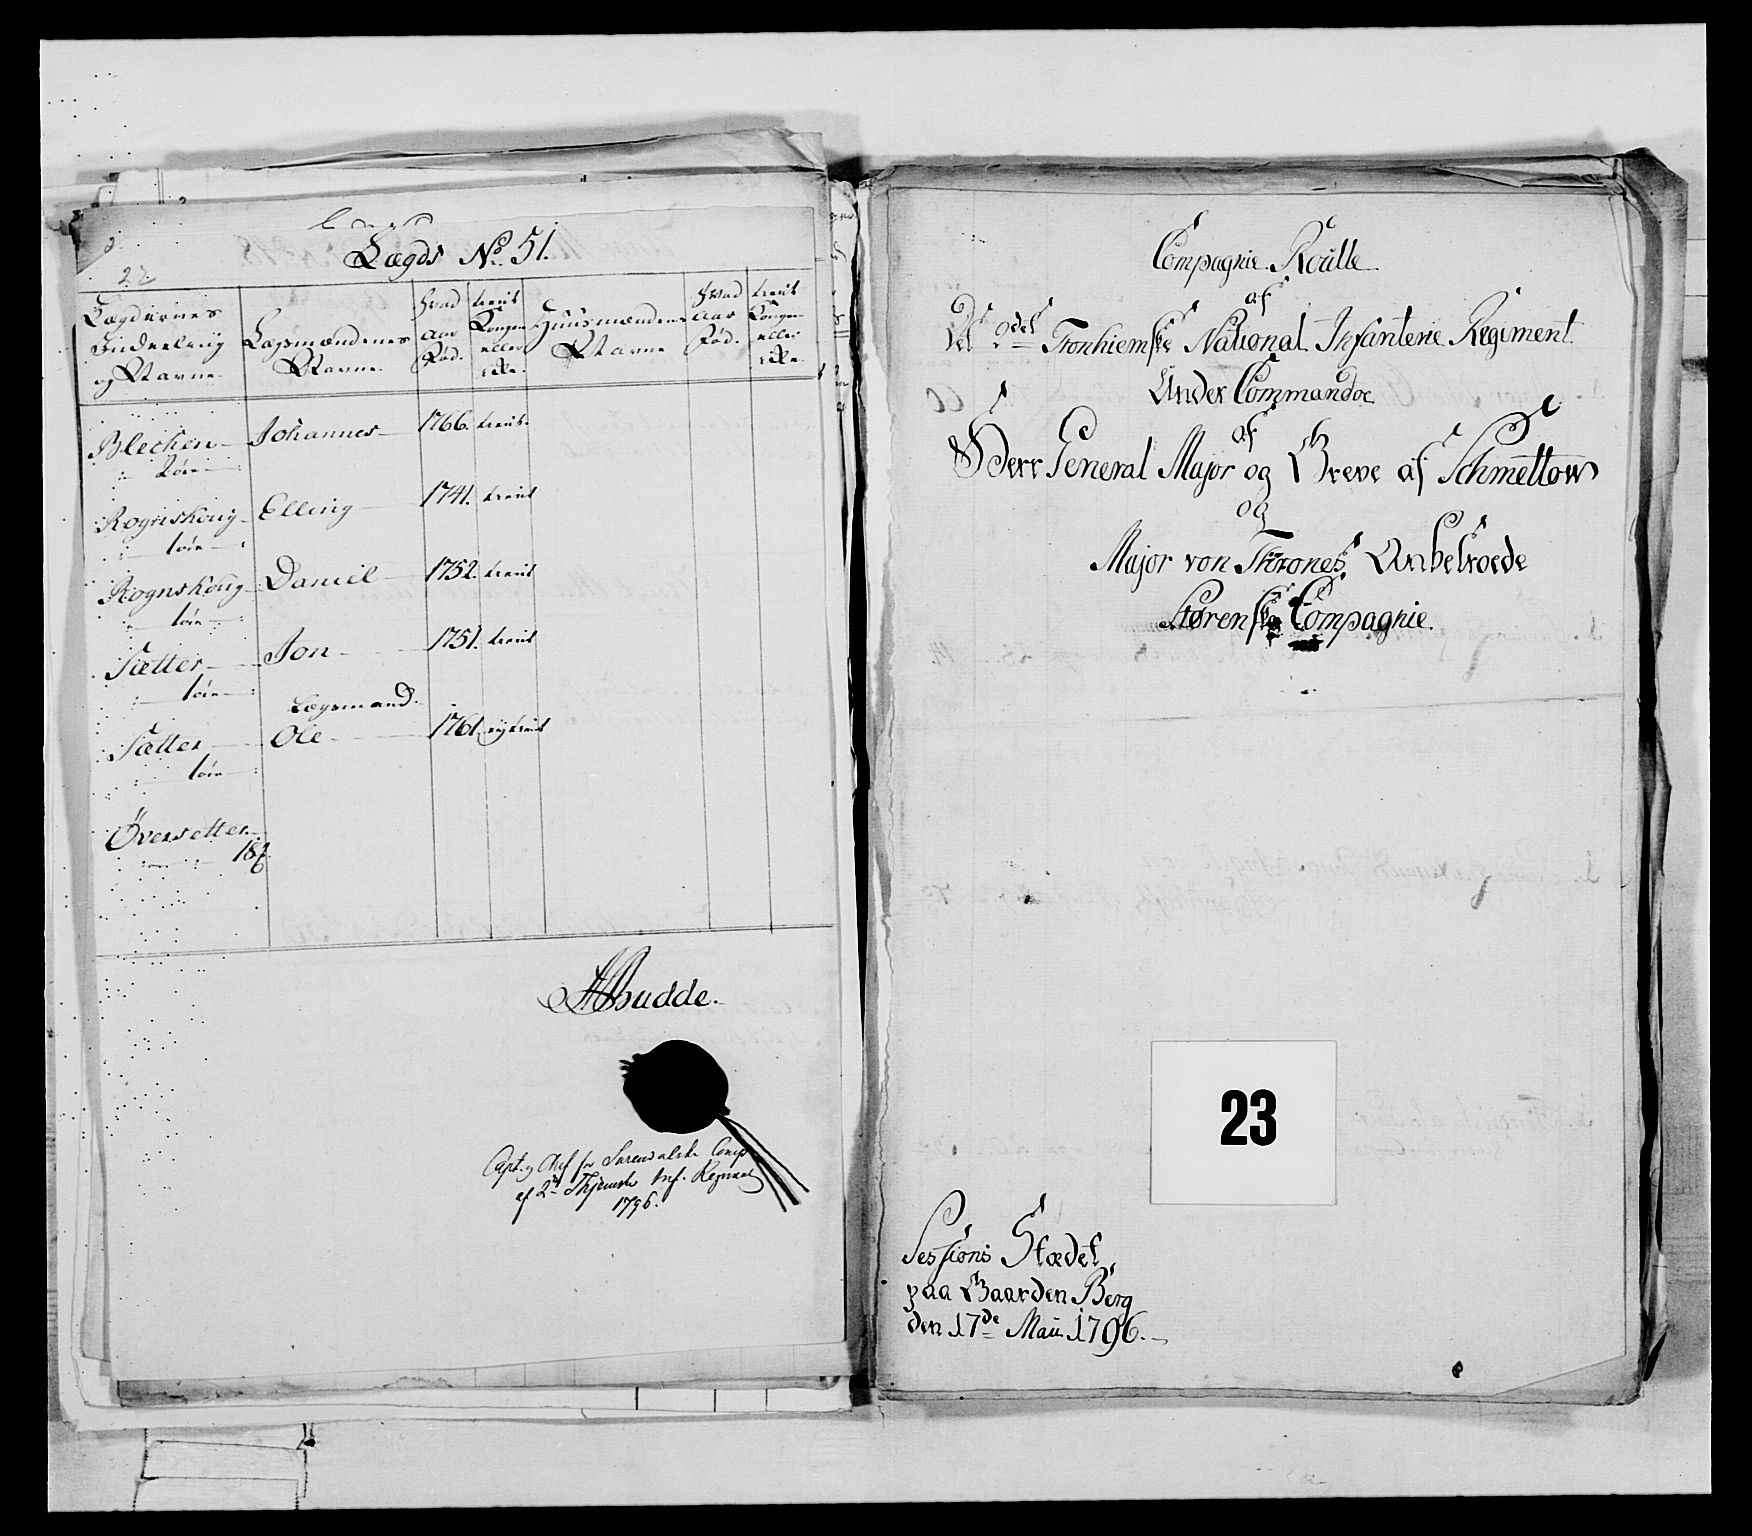 Lægds No. 51.
Lægdernes
Inddeeling
og Navne.
Lægsmændenes
Navne.
Hvad
Aar
Fød.
tient
Kongen
eller
ikke.
Huusmændenes
Navne
Hvad
Aar
Fød.
tient
Kongen
eller
ikke.
Blecken Johannes 1766. tient.
Rognskoug Elling 1741. tient
Rognskoug Daniel 1752. tient
Sætter Jon 1751. tient
Lægsmand
Sætter Ole 1761. ej tient
Översetter
Budde.
Capt. og Chef for Surendalske Comp
af 2de Thjemske Inf. Regiment
1796.
Compagnie Roulle
af
Det 2det Tronhiemske National Infanterie Regiment
Under Commandoe
af
Herr General Major og Greve af Schmettow
og
Major von Thrones Anbetroede
Størenske Compagnie.
23
Sessions Stædet
paa Gaarden Berg
den 17de Maii 1796.